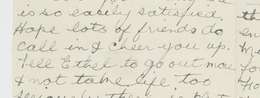 is so easily satisfied.
Hope lots of friends do
call in & cheer you up.
Tell Ethel to go out more
& not take life too